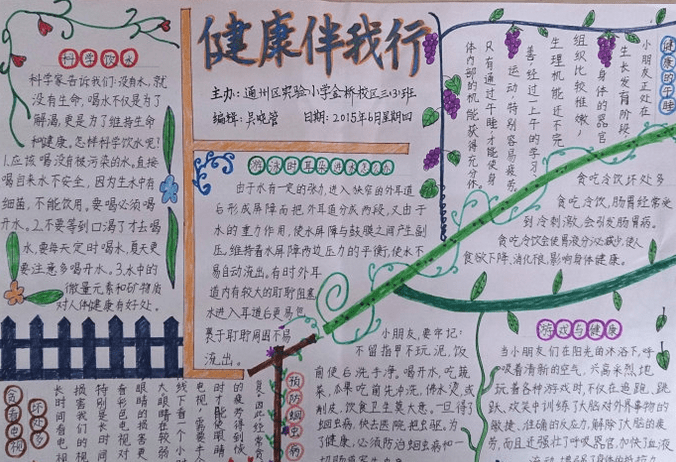 健康伴我行
主办：通州区实验小学金桥校区三(3)班
编辑：吴晓管
日期：2015年6月星期四
科学饮水
科学家告诉我们：没有水，就
没有生命，喝水不仅是为了
解渴，更是为了维持生命
和健康，怎样科学饮水呢？
1.应该喝没有被污染的水，直接
喝自来水不安全，因为生水中有
细菌，不能饮用。要喝必须喝
开水。2.不要等到口渴了才去喝
水，要每天定时喝水，夏天更
要注意多喝开水。3.水中的
微量元素和矿物质
对人体健康有好处。
游泳时耳朵进水怎么办
由于水有一定的张力，进入狭窄的外耳道
后形成屏障而把外耳道分成两段，又由于
水的重力作用，使水屏障与鼓膜之间产生副
压，维持着水屏障两边压力的平衡，使水不
易自动流出。有时外耳
道内有较大的耵耵阻塞
水进入耳道后更易包
裹于耵耵周围不易
流出。
健康的午睡
小朋友正处在
生长发育阶段，
身体的器官
组织比较稚嫩，
生理机能还不完
善，经过一上午的学习、
运动，特别容易疲劳，
只有通过午睡才能使身
体内部的机能获得充分休
贪吃冷饮坏处多
贪吃冷饮，肠胃经常受
到冷刺激，会引发肠胃病。
贪吃冷饮会使胃液分泌减少，使人
食欲下降，消化很，影响身体健康。
游戏与健康
当小朋友们在阳光的沐浴下，呼
吸着清新的空气，兴高采烈地
玩着各种游戏时，不仅在追跑、跳
跃、欢笑中训练了大脑对外界事物的
敏捷、准确的反应力，解除了大脑的疲
劳，而且还强壮了呼吸器官，加快了血液
预防蛔虫病
小朋友，要牢记：
不留指甲不玩泥，饭
前便后洗手净。喝开水，吃蔬
菜，瓜果吃前先冲洗，沸水烫，或
削皮，饮食卫生莫大意。一旦得了
蛔虫病，快去医院把虫驱。为
了健康，必须防治蛔虫病和一
贪看电视
坏处多
长时间看电视
损害我们的视
特别是长时间
看彩色电视对
眼睛的损害更
大眼睛在较弱
线下看一个小时
电视，需要半个
时才能使眼睛
的疲劳得到恢
复，因此经常贪